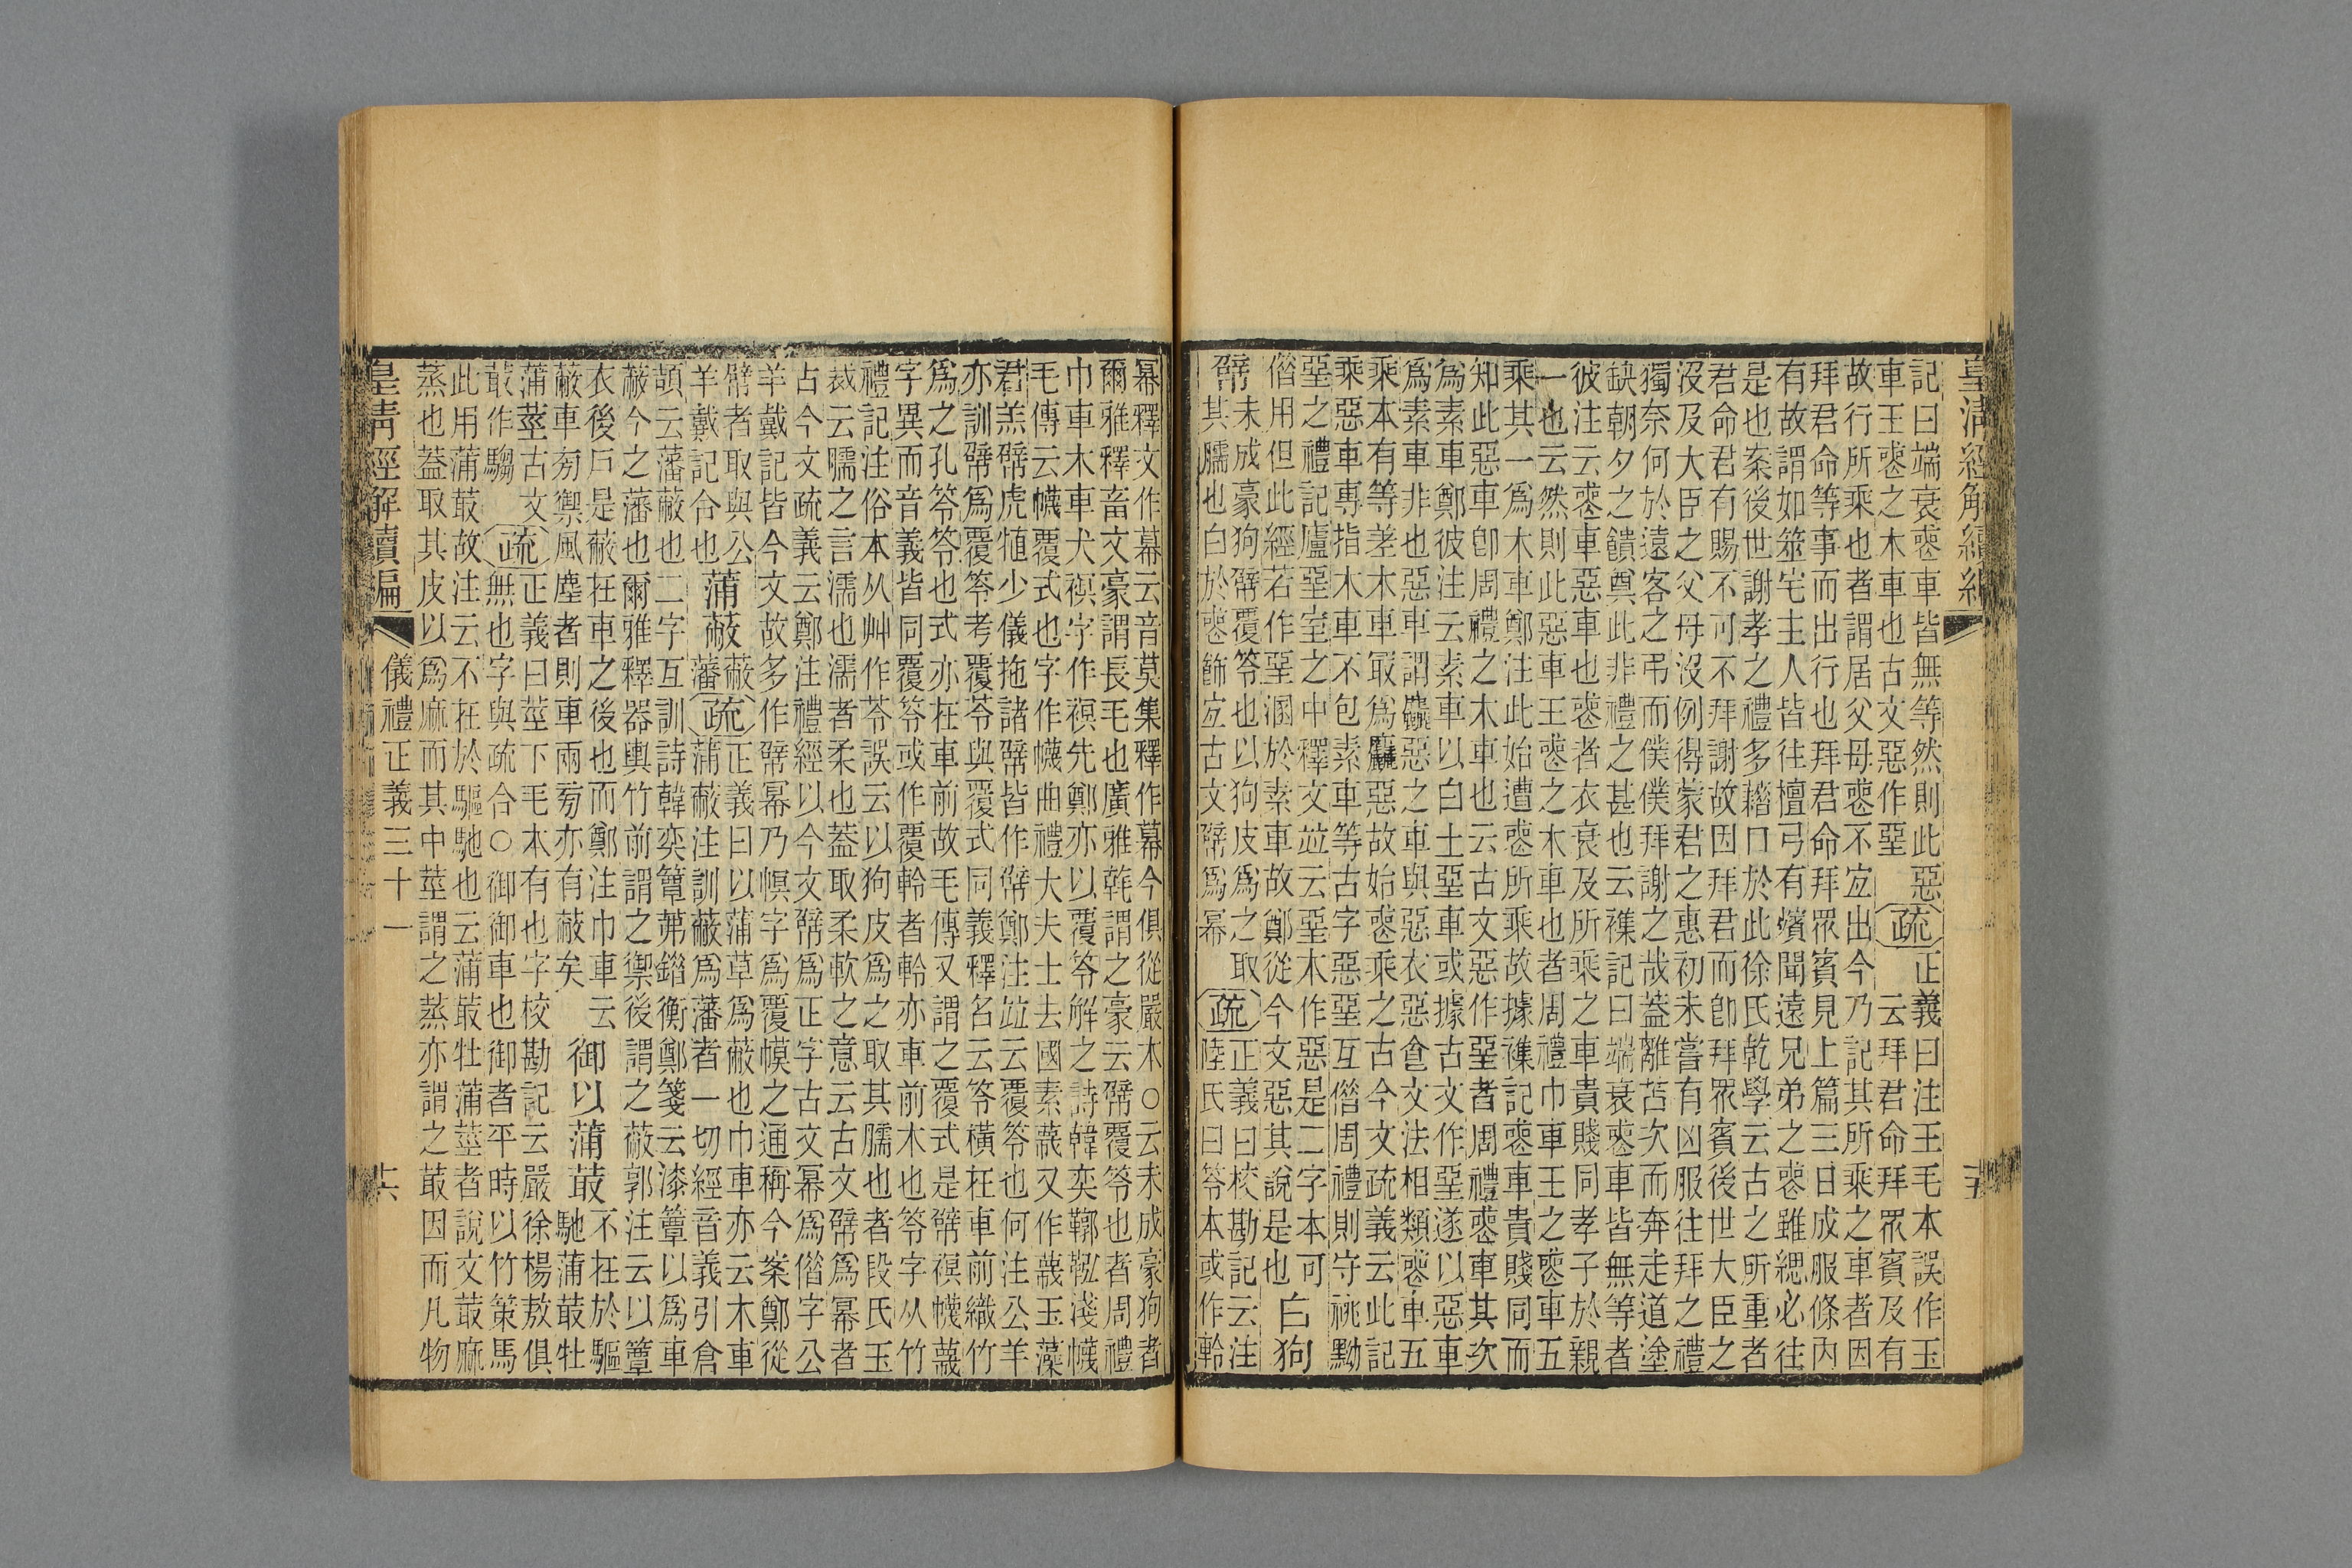 皇清經解續編
記曰端衰喪車皆無等然則此惡疏正義曰注王毛本誤作玉
車王喪之木車也古文惡作堊 云拜君命拜眾賓及有
故行所乘也者謂居父母喪不宐出今乃記其所乘之車者因
拜君命等事而出行也拜君命拜眾賓見上篇三日成服條內
有故謂如筮宅主人皆往檀弓有殯聞遠兄弟之喪雖緦必往
是也案後世謝孝之禮多藉口於此徐氏乾學云古之所重者
君命君有賜不可不拜謝故因拜君而卽拜眾賓後世大臣之
沒及大臣之父母沒例得蒙君之惠初未嘗有凶服往拜之禮
獨奈何於遠客之弔而僕僕拜謝之哉蓋離苫次而奔走道塗
缺朝夕之饋奠此非禮之甚也云襍記曰端衰喪車皆無等者
彼注云喪車惡車也喪者衣衰及所乘之車貴賤同孝子於親
一也云然則此惡車王喪之木車也者周禮巾車王之喪車五
乘其一爲木車鄭注此始遭喪所乘故據襍記喪車貴賤同而
知此惡車卽周禮之木車也云古文惡作堊者周禮喪車其次
爲素車鄭彼注云素車以白土堊車或據古文作堊遂以惡車
爲素車非也惡車謂麤惡之車與惡衣惡食文法相類喪車五
乘本有等差木車最爲麤惡故始喪乘之古今文疏義云此記
乘惡車專指木車不包素車等古字惡堊互偝周禮則守祧黝
堊之禮記廬堊室之中釋文竝云堊本作惡是二字本可
偝用但此經若作堊溷於素車故鄭從今文惡其說是也 白狗
幦未成豪狗幦覆笭也以狗皮爲之取疏正義曰校勘記云注
其臑也白於喪飾宐古文幦爲冪 陸氏曰笭本或作軨
五
冪釋文作幕云音莫集釋作幕今俱從嚴本○云未成豪狗者
爾雅釋畜文豪謂長毛也廣雅毨謂之豪云幦覆笭也者周禮
巾車木車犬䙝字作䙝先鄭亦以覆笭解之詩韓奕鞹鞃淺幭
毛傳云幭覆式也字作幭曲禮大夫士去國素䉛又作䉛玉藻
君羔幦虎犆少儀拖諸幦皆作幦鄭注竝云覆笭也何注公羊
亦訓幦爲覆笭考覆苓與覆式同義釋名云笭橫在車前織竹
爲之孔笭笭也式亦在車前故毛傳又謂之覆式是幦䙝幭䉛
字異而音義皆同覆笭或作覆軨者軨亦車前木也笭字从竹
禮記注俗本从艸作苓誤云以狗皮爲之取其臑也者段氏玉
裁云臑之言濡也濡者柔也蓋取柔軟之意云古文幦爲冪者
古今文疏義云鄭注禮經以今文幦爲正字古文冪爲偝字公
羊戴記皆今文故多作幦冪乃幎字爲覆幎之通稱今案鄭從
幦者取與公 蒲蔽蔽疏正義曰以蒲草爲蔽也巾車亦云木車
羊戴記合也 藩 蒲蔽注訓蔽爲藩者一切經音義引倉
頡云藩蔽也二字互訓詩韓奕簟茀錯衡鄭箋云漆簟以爲車
蔽今之藩也爾雅釋器輿竹前謂之禦後謂之蔽郭注云以簟
衣後戶是蔽在車之後也而鄭注巾車云 御以蒲菆不在於驅
蔽車旁禦風塵者則車兩旁亦有蔽矣 馳蒲菆牡
蒲莖古文疏正義曰莖下毛本有也字校勘記云嚴徐楊敖俱
菆作騶 無也字與疏合○御御車也御者平時以竹策馬
此用蒲菆故注云不在於驅馳也云蒲菆牡蒲莖者說文菆麻
蒸也蓋取其皮以爲麻而其中莖謂之蒸亦謂之菆因而凡物
皇清經解續編 儀禮正義三十一 六